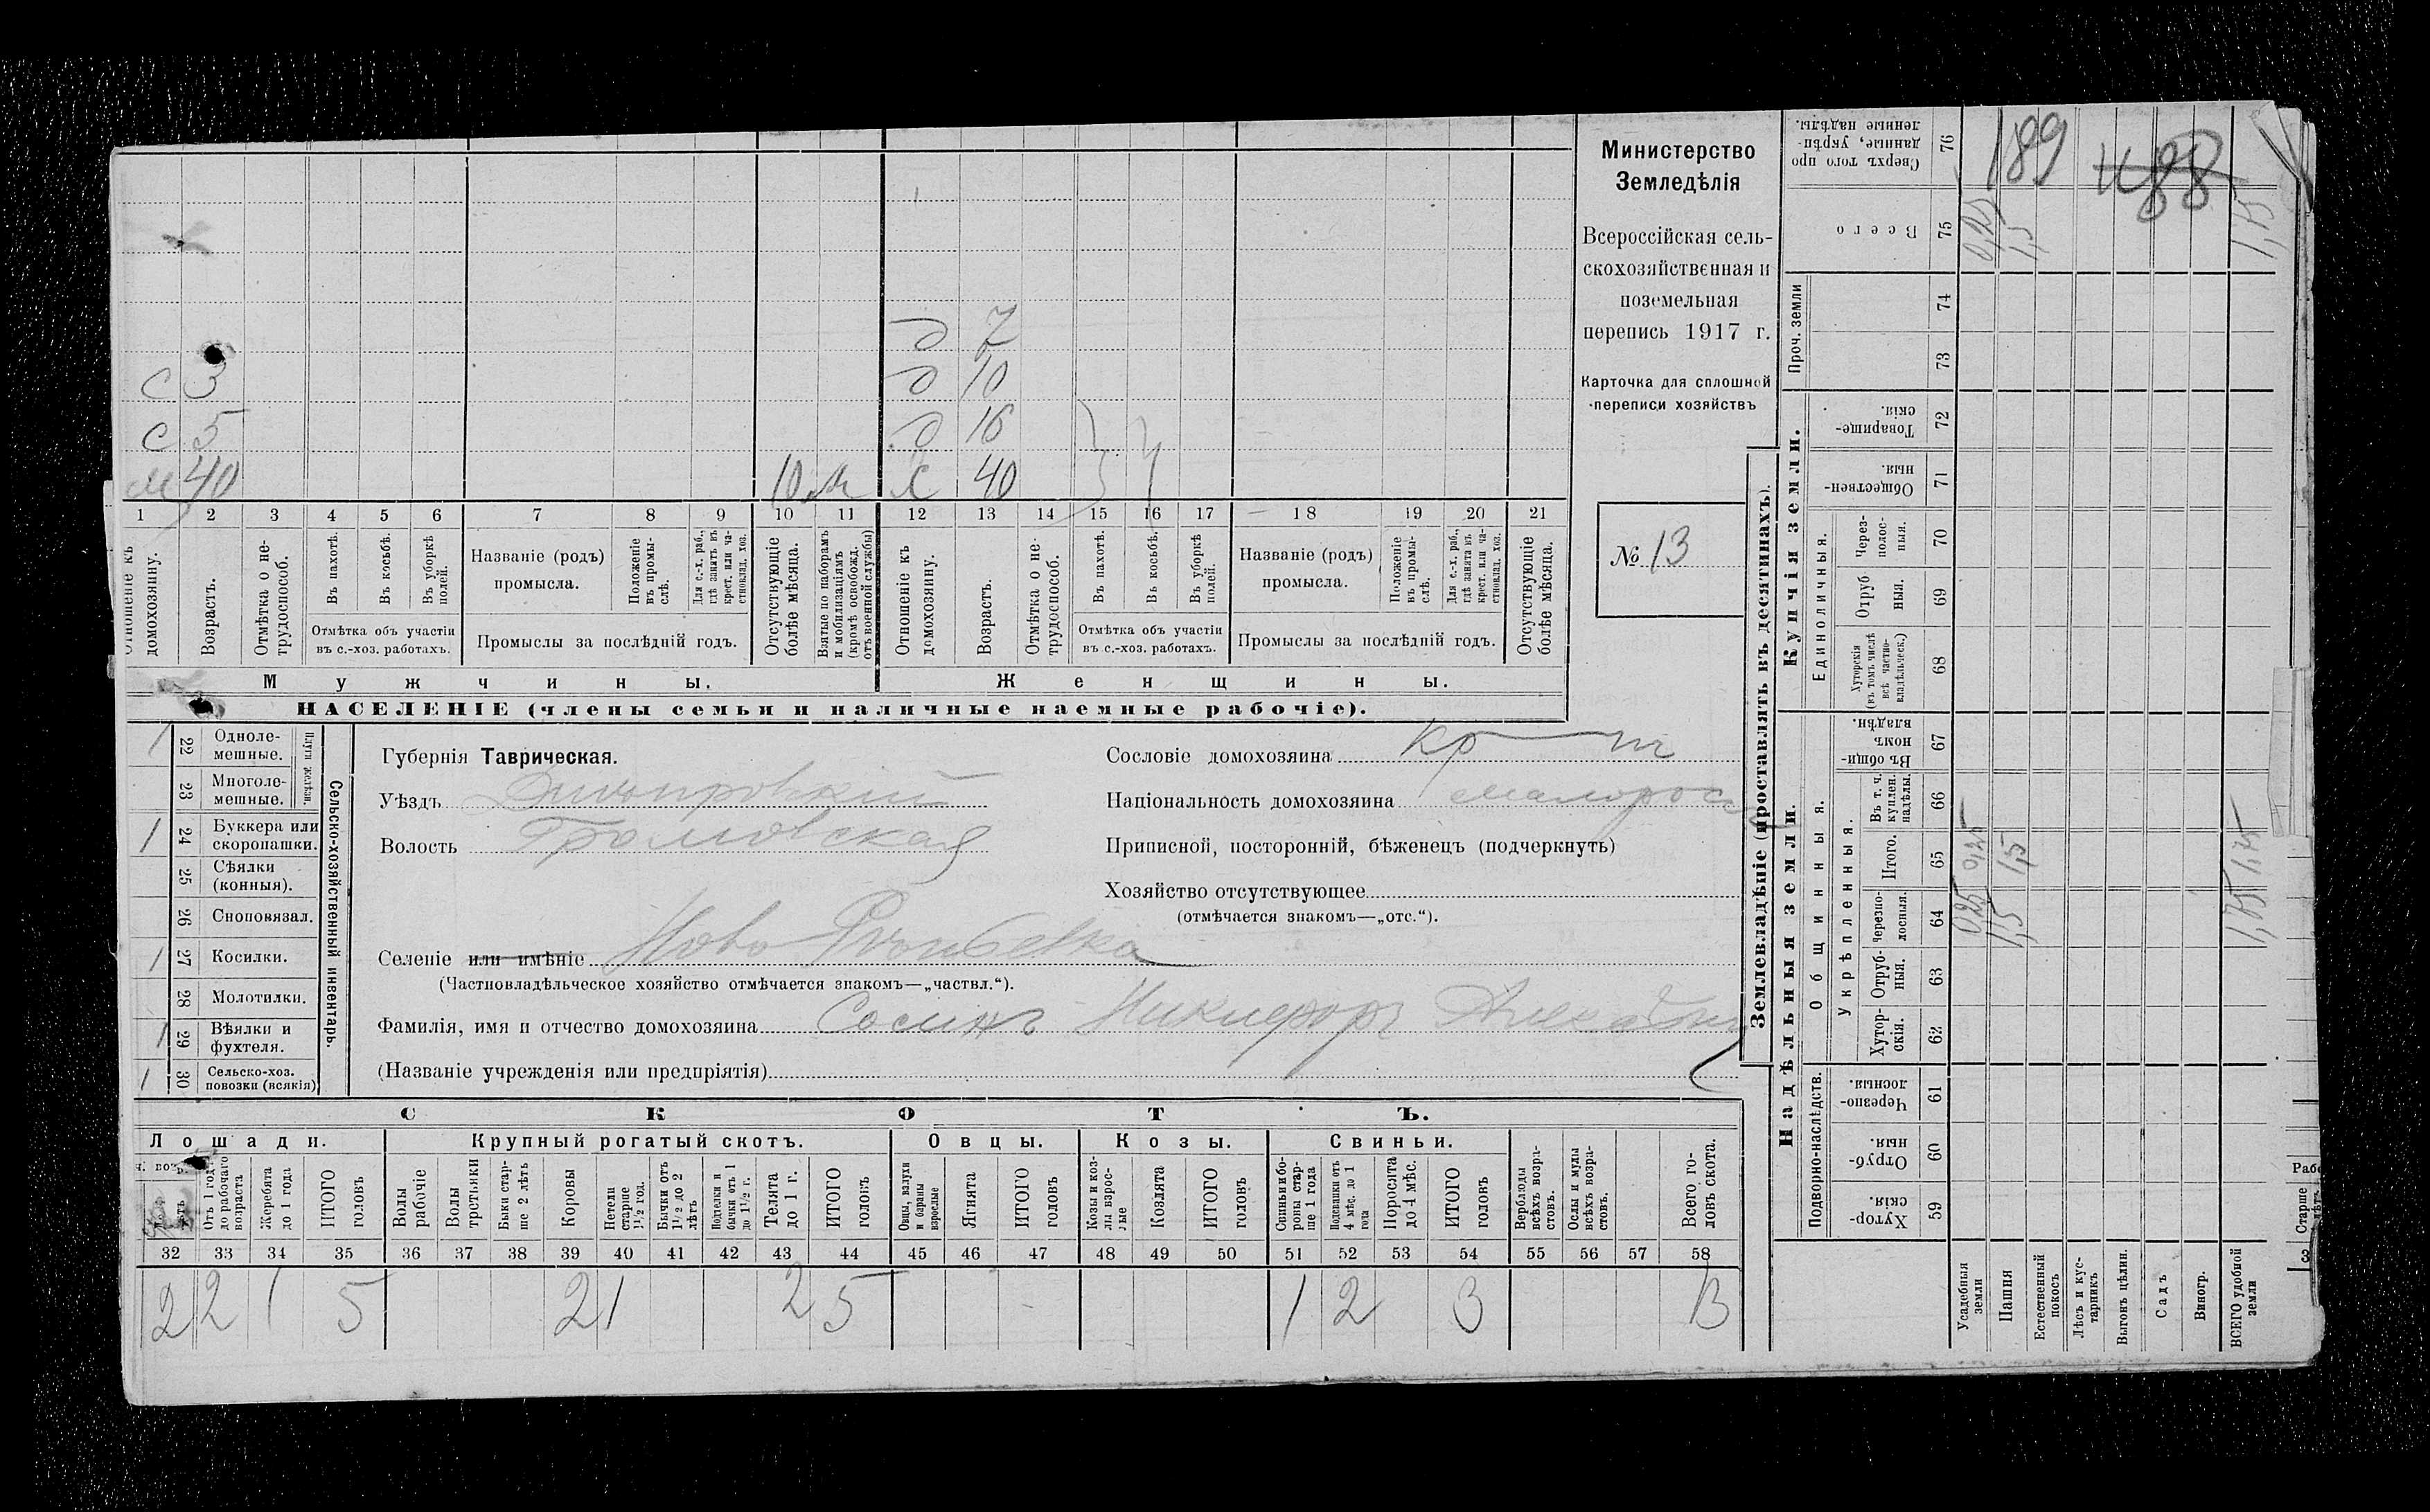 Министерство
Земледѣлія
Всероссійская сель-
скохозяйственная и
поземельная
перепись 1917 г.
Карточка для сплошной
переписи хозяйствъ
№ 13
д 7
с 3 д 10
с 5 д 16
м 40 10 м 40
1 2 3 4 5 6 7 8 9 10 11 12 13 14 15 16 17 18 19 20 21
Отношеніе къ домохозяину.
Возрастъ.
Отмѣтка о не-трудоспособ.
Въ пахотѣ.
Въ косьбѣ.
Въ уборкѣ полей.
Отмѣтка объ участіи въ с.-хоз. работахъ.
Названіе (родъ) промысла.
Положеніе въ промы-слѣ.
Для с.-х. раб., гдѣ занятъ въ крест. или ча-стновлад. хоз.
Промыслы за послѣдній годъ.
Отсутствующіе болѣе мѣсяца.
Взятые по наборамъ и мобилизаціямъ (кромѣ освобожд. отъ военной службы)
Отношеніе къ домохозяину.
Возрастъ.
Отмѣтка о не-трудоспособ.
Въ пахотѣ.
Въ косьбѣ.
Въ уборкѣ полей.
Отмѣтка объ участіи въ с.-хоз. работахъ.
Названіе (родъ) промысла.
Положеніе въ промы-слѣ.
Для с.-х. раб., гдѣ занята въ крест. или ча-стновлад. хоз.
Промыслы за послѣдній годъ.
Отсутствующіе болѣе мѣсяца.
Мужчины. Женщины.
НАСЕЛЕНІЕ (члены семьи и наличные наемные рабочіе).
Сельско-хозяйственный инвентарь.
Плуги желѣзн.
1 22 Одноле-мешные.
23 Многоле-мешные.
1 24 Буккера или скоропашки.
25 Сѣялки (конныя).
26 Сноповязал.
1 27 Косилки.
28 Молотилки.
1 29 Вѣялки и фухтеля.
1 30 Сельско-хоз. повозки (всякія)
Губернія Таврическая.
Уѣздъ Днѣпровскій
Волость Громовская
Селеніе или имѣніе Ново
(Частновладѣльческое хозяйство отмѣчается знакомъ—„частвл.“).
Фамилія, имя и отчество домохозяина Сосинъ Никифоръ
(Названіе учрежденія или предпріятія)
Сословіе домохозяина кр
Національность домохозяина малоросс
Приписной, посторонній, бѣженецъ (подчеркнуть)
Хозяйство отсутствующее
(отмѣчается знакомъ—„отс.“).
СКОТЪ.
Лошади. Крупный рогатый скотъ. Овцы. Козы. Свиньи.
Отъ 1 год. до рабочаго возраста
Жеребята до 1 года
ИТОГО головъ
Волы рабочіе
Волы третьяки
Быки стар-ше 2 лѣтъ
Коровы
Петели старше 1½ год.
Бычки отъ 1½ до 2 лѣтъ
Подтелки и бычки отъ 1 до 1½ г.
Телята до 1 г.
ИТОГО головъ
Овцы, валухи и бараны взрослые
Ягнята
ИТОГО головъ
Козы и коз-лы взрос-лые
Козлята
ИТОГО головъ
Свиньи и бо-ровы стар-ше 1 года
Подсвинки отъ 4 мѣс. до 1 года
Поросята до 4 мѣс.
ИТОГО головъ
Верблюды всѣхъ возра-стовъ.
Ослы и мулы всѣхъ возра-стовъ.
Всего го-ловъ скота.
32 33 34 35 36 37 38 39 40 41 42 43 44 45 46 47 48 49 50 51 52 53 54 55 56 57 58
2 2 1 5 2 1 2 5 1 2 3 13
Землевладѣніе (проставлять въ десятинахъ).
Надѣльныя земли. Купчія земли. Проч. земли
Подворно-наслѣдств.
Общинныя.
Укрѣпленныя.
Единоличныя.
Хутор-скія. 59
Отруб-ныя. 60
Черезпо-лосныя. 61
Хутор-скія. 62
Отруб-ныя. 63
Черезпо-лосныя. 64
Итого. 65
Въ т. ч. куплен. надѣлы. 66
Въ общин-номъ владѣн. 67
Хуторскія (въ томъ числѣ всѣ частно-владѣльческ.) 68
Отруб-ныя. 69
Через-полос-ныя. 70
Обществен-ныя. 71
Товарище-скія. 72
73
74
Всего 75
Сверхъ того про-данные, укрѣп-ленные надѣлы. 76
Усадебныя земли 0,25 0,25 0,25
Пашня 1,5 1,5 1,5
Естественный покосъ
Лѣсъ и кус-тарникъ
Выгонъ цѣлин.
Садъ
Виногр.
ВСЕГО удобной земли 1,75 1,75 1,75
189
88
Старше